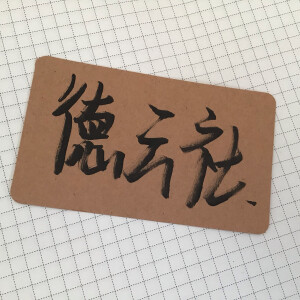 德云社.